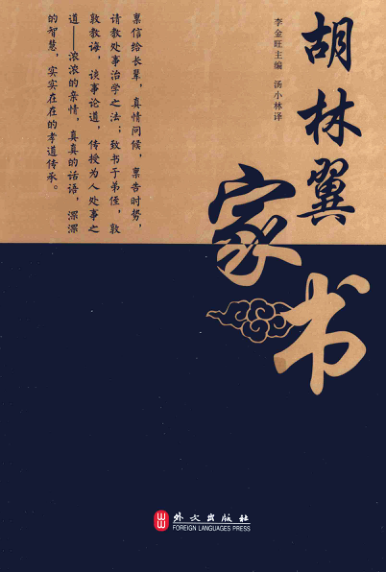 胡林翼
家书
李金旺主编 汤小林译
禀信给长辈，真情问候，禀告时势，
请教处事治学之法；致书于弟侄，敦
敦教诲，谈事论道，传授为人处事之
道——浓浓的亲情，真真的话语，深深
的智慧，实实在在的孝道传承。
外文出版社
FOREIGN LANGUAGES PRESS